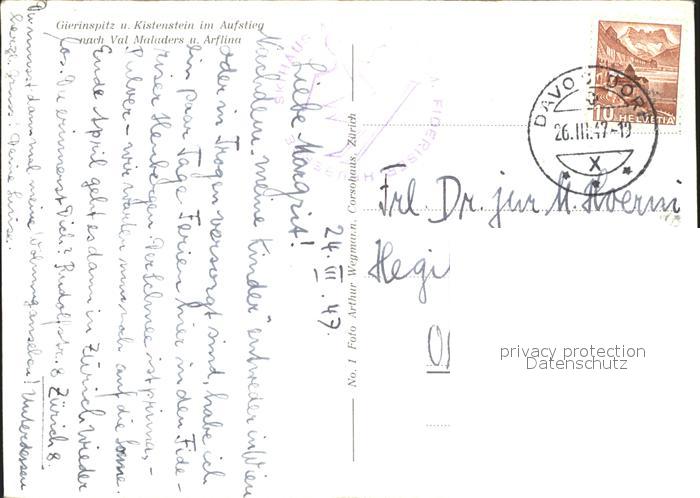 Gierinspitz u. Kistenstein im Aufstieg
nach Val Maladers u. Arflina
24. III. 47.
Liebe Margrit!
Nachdem meine "Kinder" entweder in Wien
oder in Trogen versorgt sind, habe ich
ein paar Tage Ferien hier in den Fide-
riser Heubergen. Der Schnee ist prima, -
Pulver - wir warten nur noch auf die Sonne.
Ende April geht es dann in Zürich wieder
los. Du erinnerst Dich? Rudolfstr. 8 Zürich 8.
Du musst dann mal meine Wohnung ansehen! Unterdessen
herzl. Gruss! Deine Luise.
No. 1 Foto Arthur Wegmann, Corsohaus, Zürich
FIDERISER
SKIHAUS
HELVETIA
10
DAVOS DORF
26.III.47-19
X
Frl. Dr. jur M. Hoerni
Hegi
privacy protection
Datenschutz